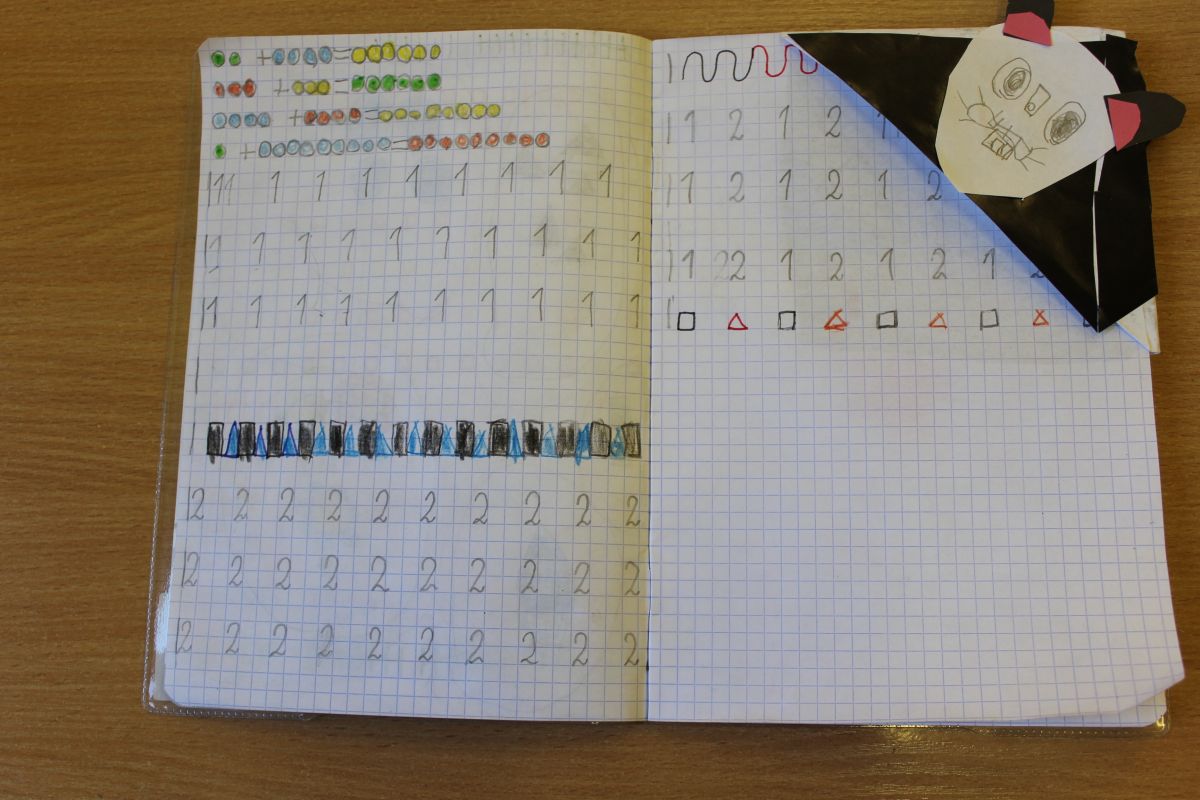 + =
+ =
+ =
+ =
11 1 1 1 1 1 1 1 1
1 1 1 1 1 1 1 1 1 1
1 1 1 1 1 1 1 1 1 1
2 2 2 2 2 2 2 2 2 2
2 2 2 2 2 2 2 2 2 2
2 2 2 2 2 2 2 2 2 2
1 2 1 2 1
1 2 1 2 1 2
1 22 1 2 1 2 1 2